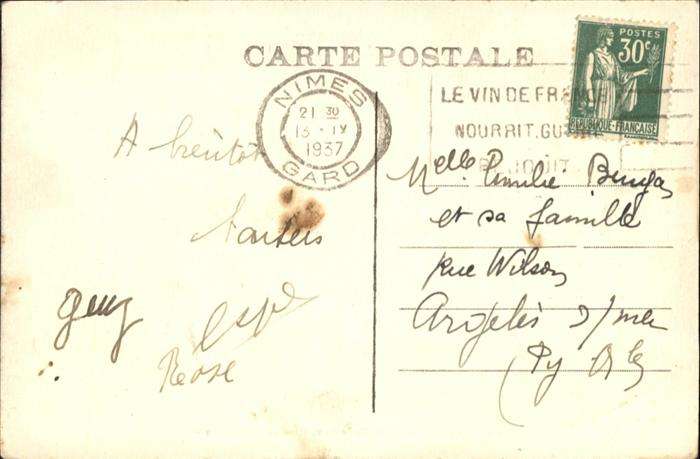 CARTE POSTALE
NIMES
21 30
13 - IV
1937
GARD
LE VIN DE FRANCE
NOURRIT. GUERIT
REJOUIT
POSTES
30c
REPUBLIQUE-FRANÇAISE
A bientôt
Rose
Melle Emilie
et sa famille
Rue Wilson
Argelès s/mer
(Py Ories